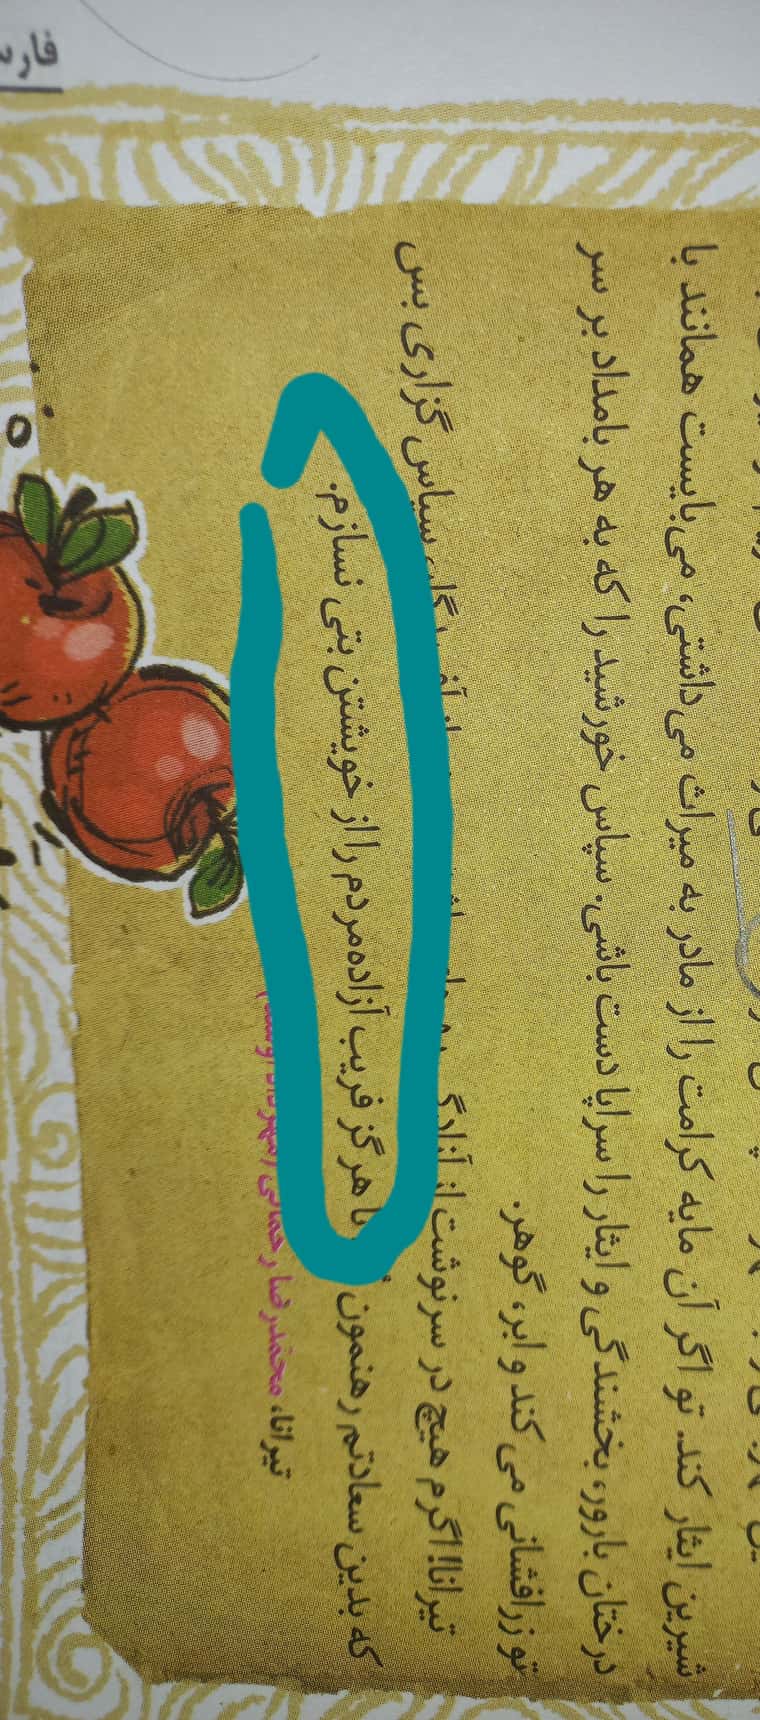 فارس
شیرین ایثار کند. تو اگر آن مایه کرامت را از مادر به میراث می‌داشتی، می‌بایست همانند با
درختان بارور، بخشندگی و ایثار را سراپا دست باشی. سپاس خورشید را که به هر بامداد بر سر
تو زرافشانی می کند و ابر، گوهر.
تیرانا! اگرم هیچ در سرنوشت از آزادگی سپاس گزاری بس
که بدین سعادتم رهنمون تا هرگز فریب آزاده‌مردم را از خویشتن بتی نسازم.
تیرانا، محمدرضا رحمانی